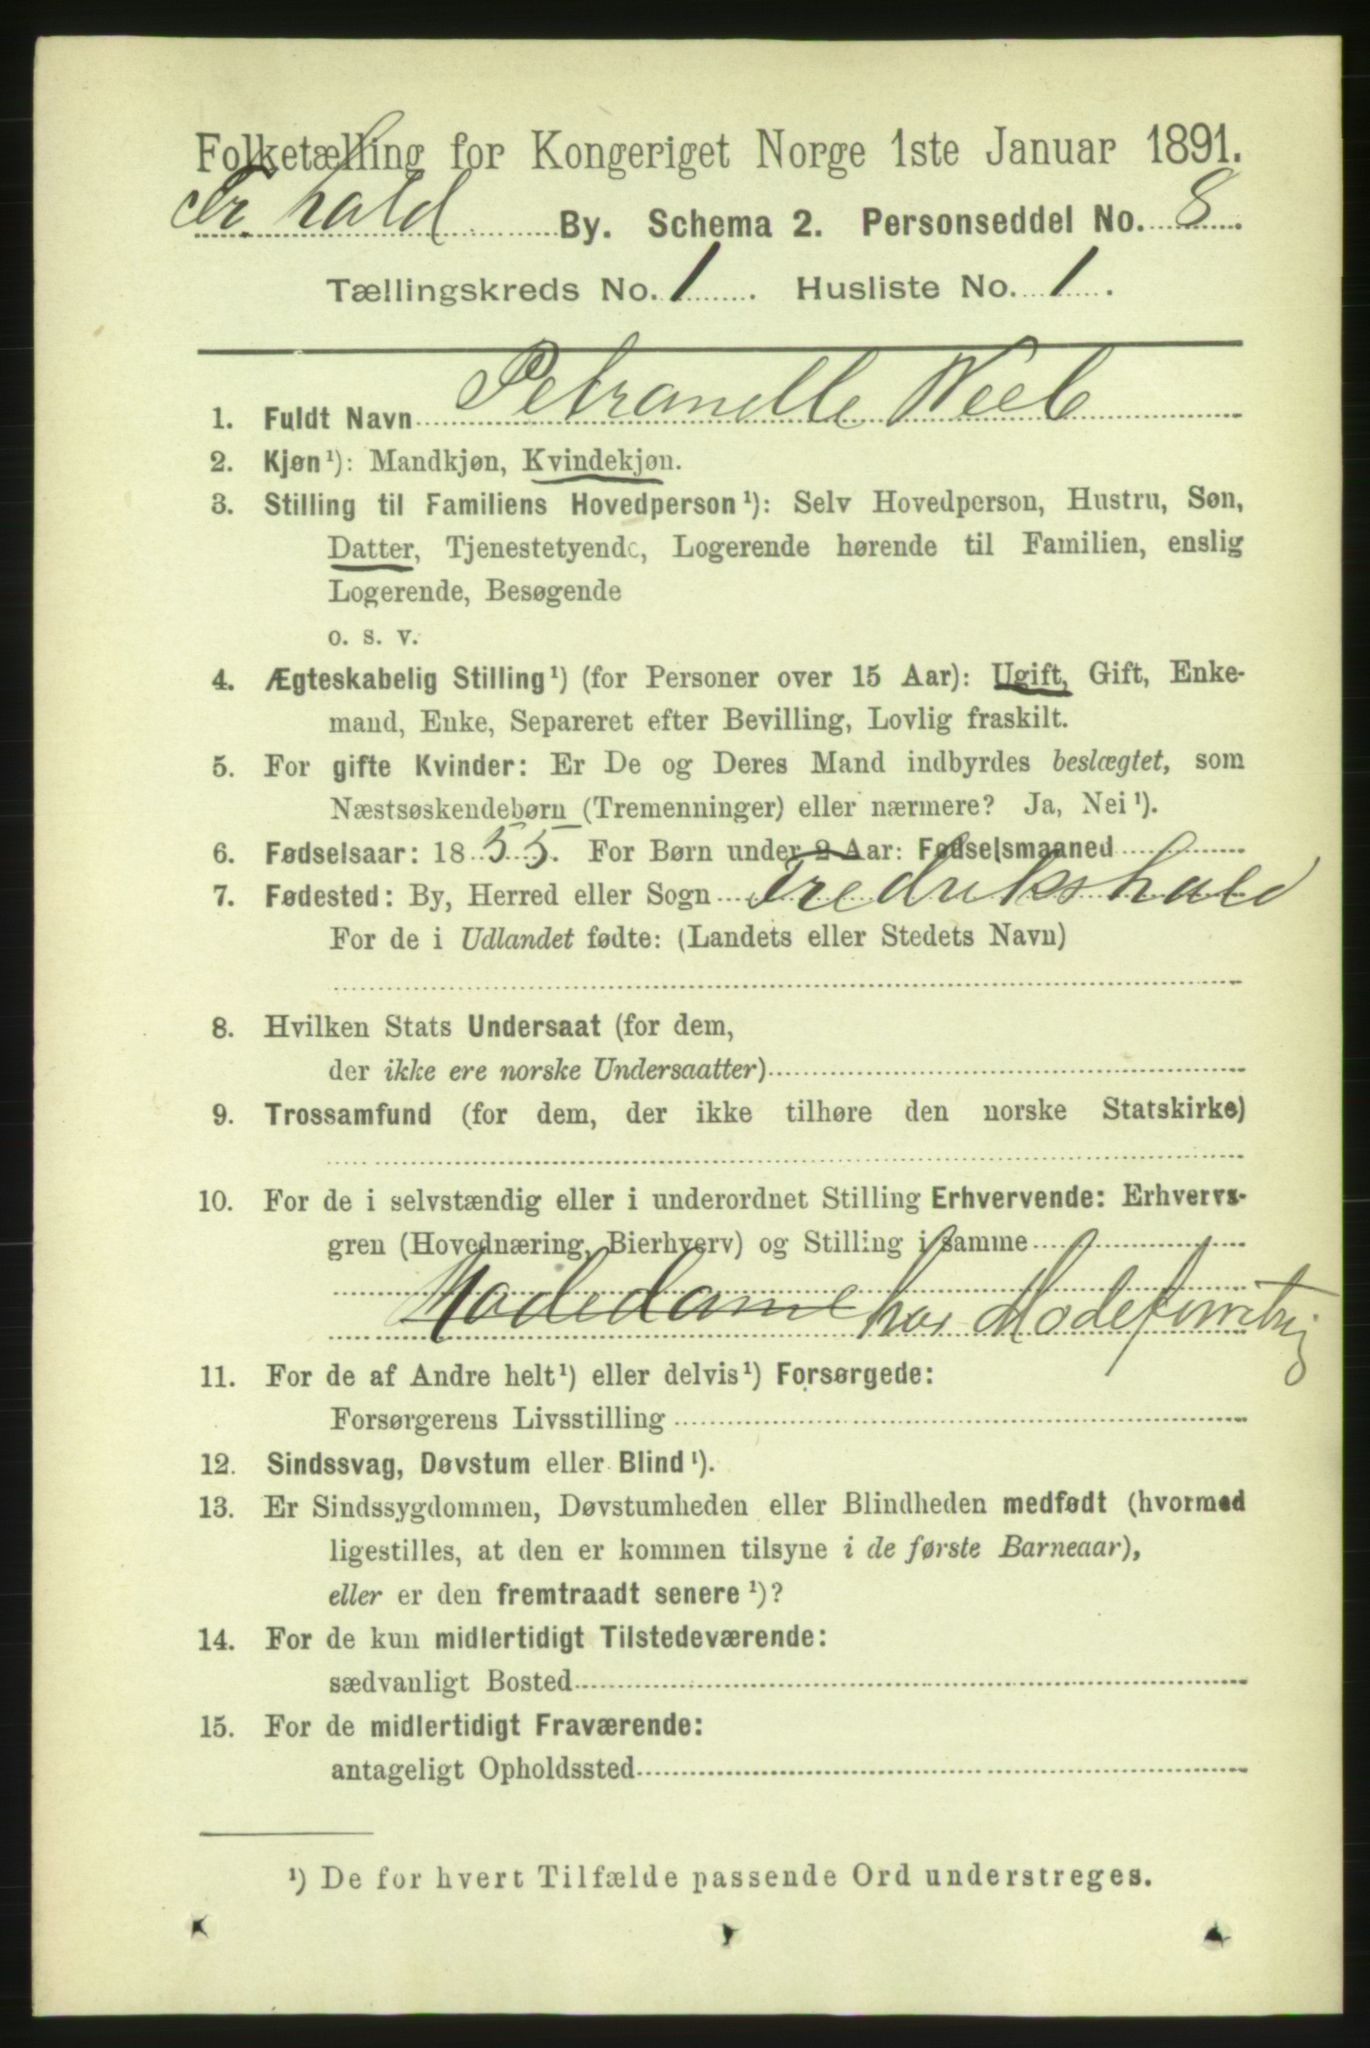 Folketælling for Kongeriget Norge 1ste Januar 1891.
Fr. hald By. Schema 2. Personseddel No. 8.
Tællingskreds No. 1. Husliste No. 1.
1. Fuldt Navn Petranelle Weeb
2. Kjøn¹): Mandkjøn, Kvindekjøn.
3. Stilling til Familiens Hovedperson¹): Selv Hovedperson, Hustru, Søn,
Datter, Tjenestetyende, Logerende hørende til Familien, enslig
Logerende, Besøgende
o. s. v.
4. Ægteskabelig Stilling¹) (for Personer over 15 Aar): Ugift, Gift, Enke-
mand, Enke, Separeret efter Bevilling, Lovlig fraskilt.
5. For gifte Kvinder: Er De og Deres Mand indbyrdes beslægtet, som
Næstsøskendebørn (Tremenninger) eller nærmere? Ja, Nei¹).
6. Fødselsaar: 1855. For Børn under 2 Aar: Fødselsmaaned
7. Fødested: By, Herred eller Sogn Fredrikshald
For de i Udlandet fødte: (Landets eller Stedets Navn)
8. Hvilken Stats Undersaat (for dem,
der ikke ere norske Undersaatter)
9. Trossamfund (for dem, der ikke tilhøre den norske Statskirke)
10. For de i selvstændig eller i underordnet Stilling Erhvervende: Erhvervs-
gren (Hovednæring, Bierhverv) og Stilling i samme
Modedame har Modeforretnig
11. For de af Andre helt¹) eller delvis¹) Forsørgede:
Forsørgerens Livsstilling
12. Sindssvag, Døvstum eller Blind¹).
13. Er Sindssygdommen, Døvstumheden eller Blindheden medfødt (hvormed
ligestilles, at den er kommen tilsyne i de første Barneaar),
eller er den fremtraadt senere¹)?
14. For de kun midlertidigt Tilstedeværende:
sædvanligt Bosted
15. For de midlertidigt Fraværende:
antageligt Opholdssted
¹) De for hvert Tilfælde passende Ord understreges.